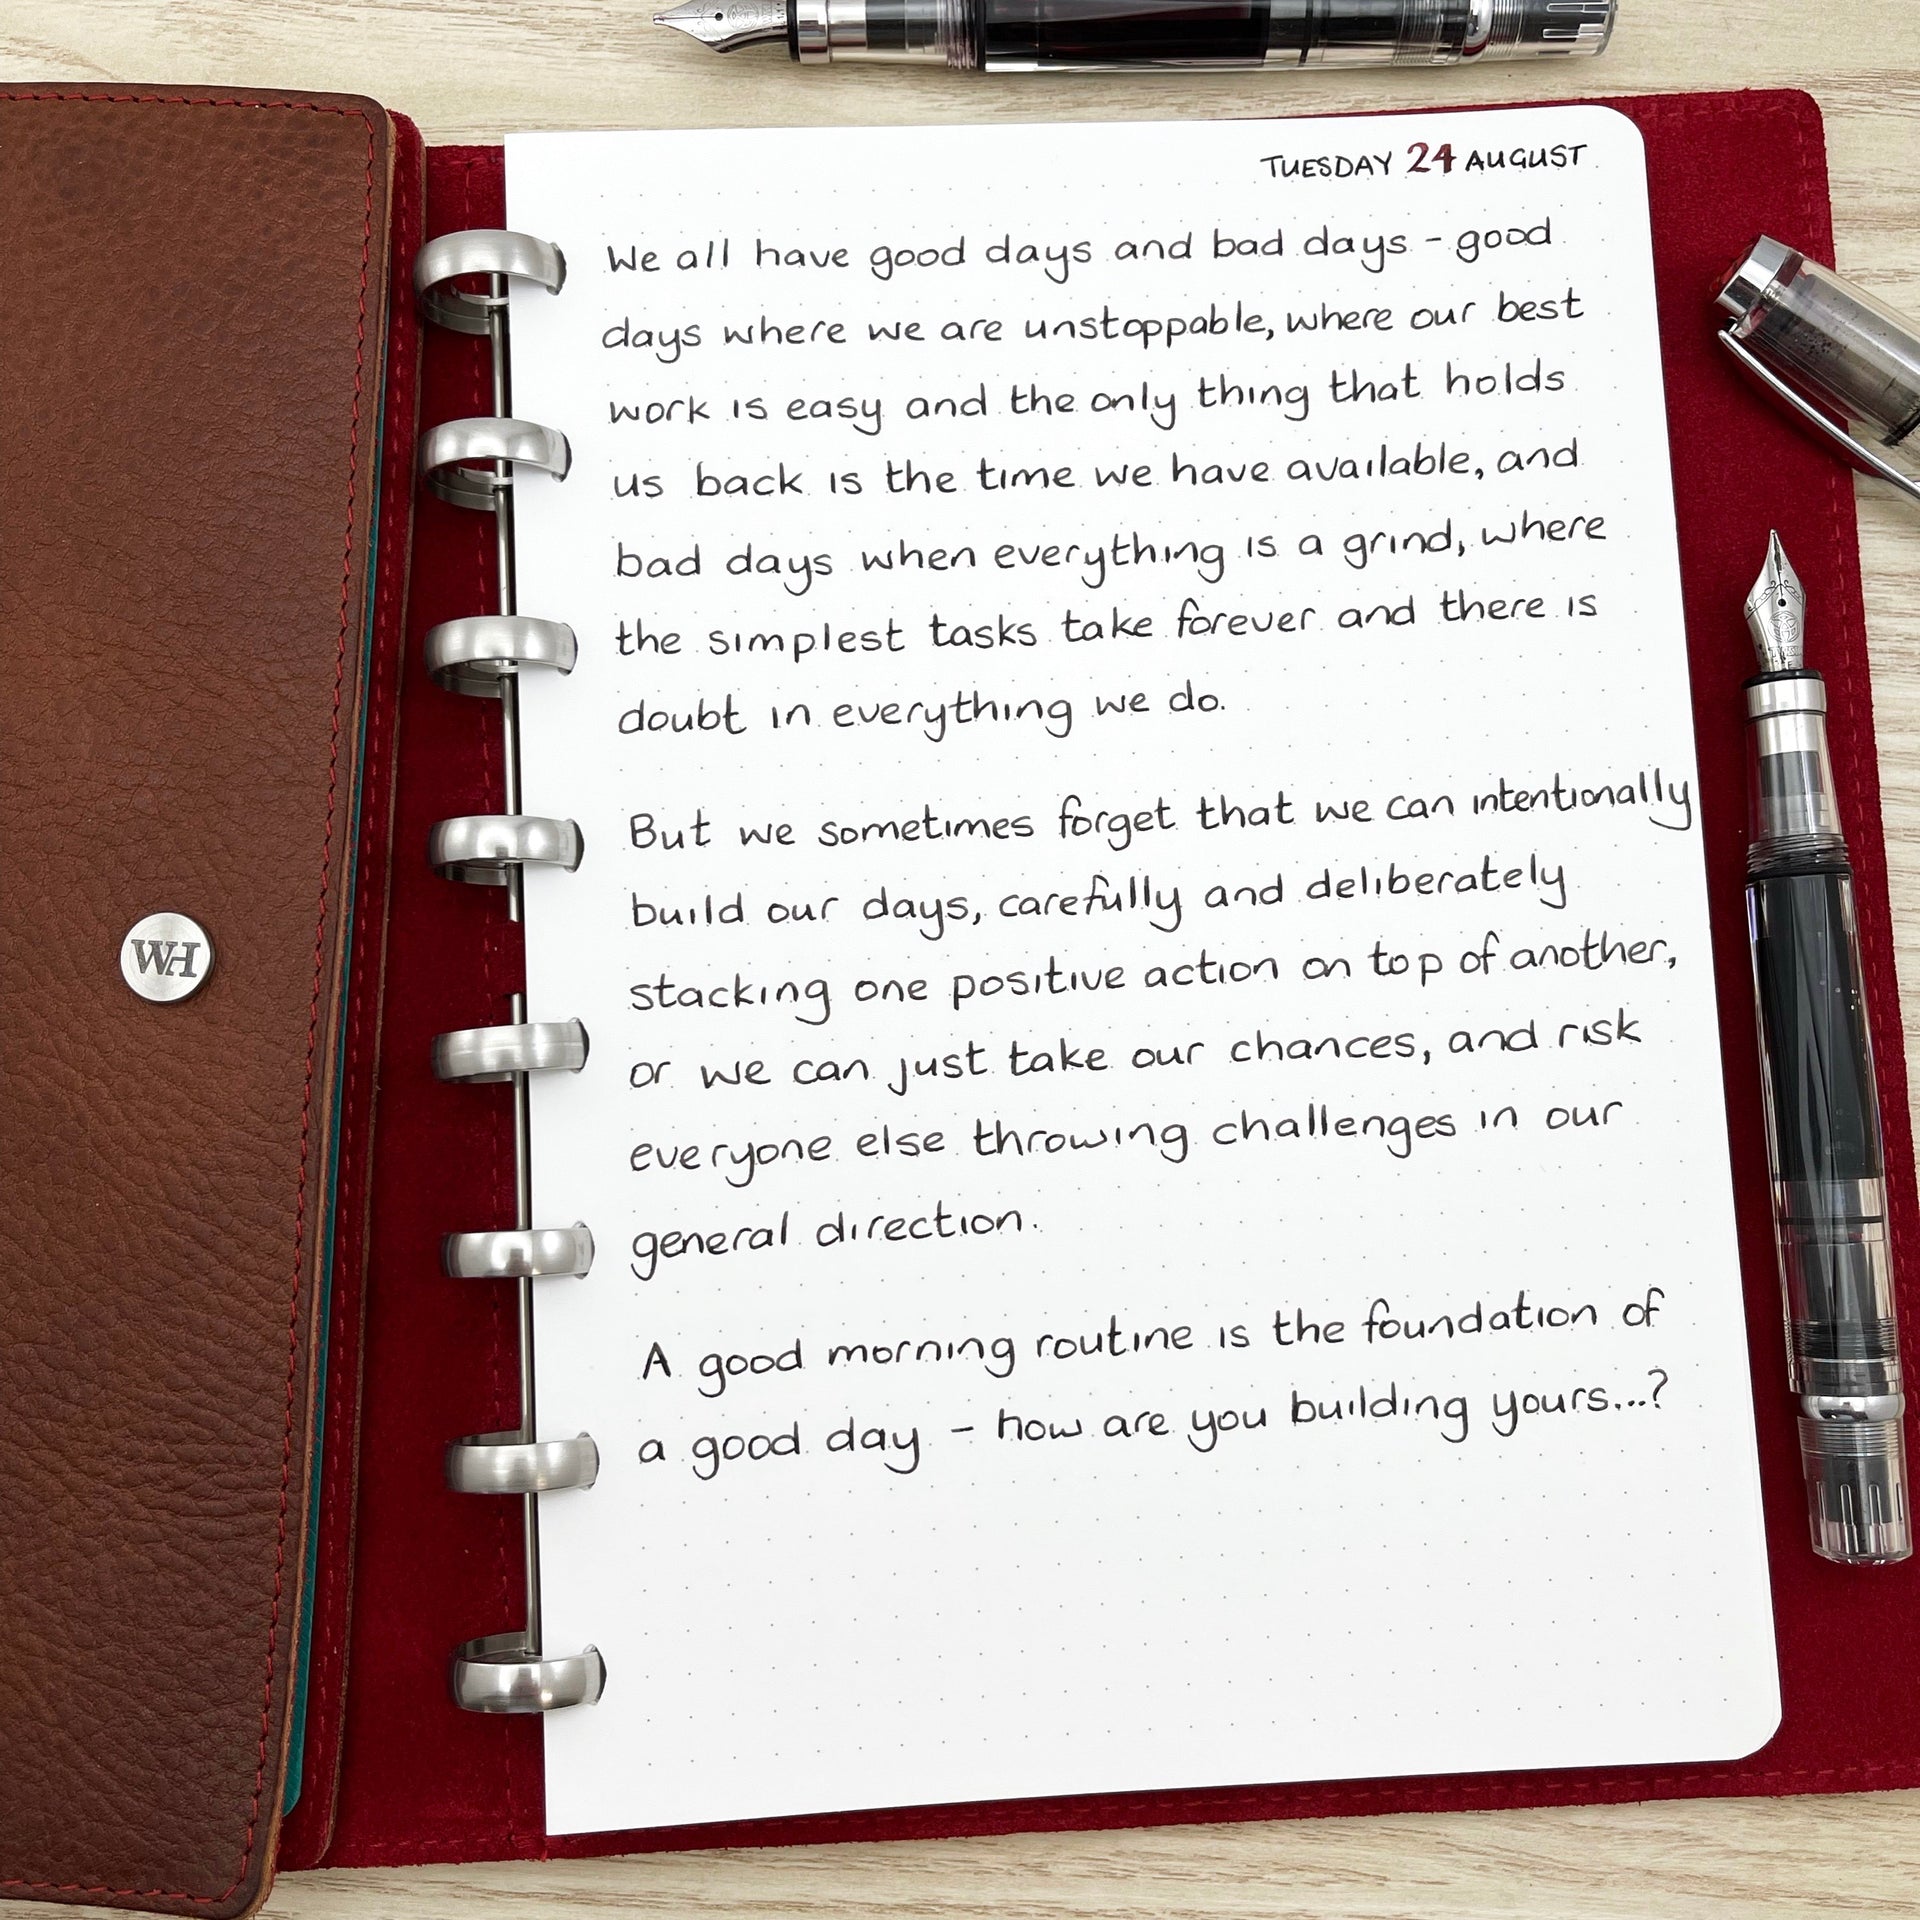 TUESDAY 24 AUGUST
We all have good days and bad days - good
days where we are unstoppable, where our best
work is easy and the only thing that holds
us back is the time we have available, and
bad days when everything is a grind, where
the simplest tasks take forever and there is
doubt in everything we do.
But we sometimes forget that we can intentionally
build our days, carefully and deliberately
stacking one positive action on top of another,
or we can just take our chances, and risk
everyone else throwing challenges in our
general direction.
A good morning routine is the foundation of
a good day - how are you building yours...?
WH